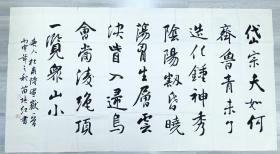 岱宗夫如何
齊魯青未了
造化鍾神秀
陰陽割昏曉
蕩胸生層雲
決眥入歸鳥
會當凌絕頂
一覽衆山小
人杜甫詩
丙申年之秋苗培红書